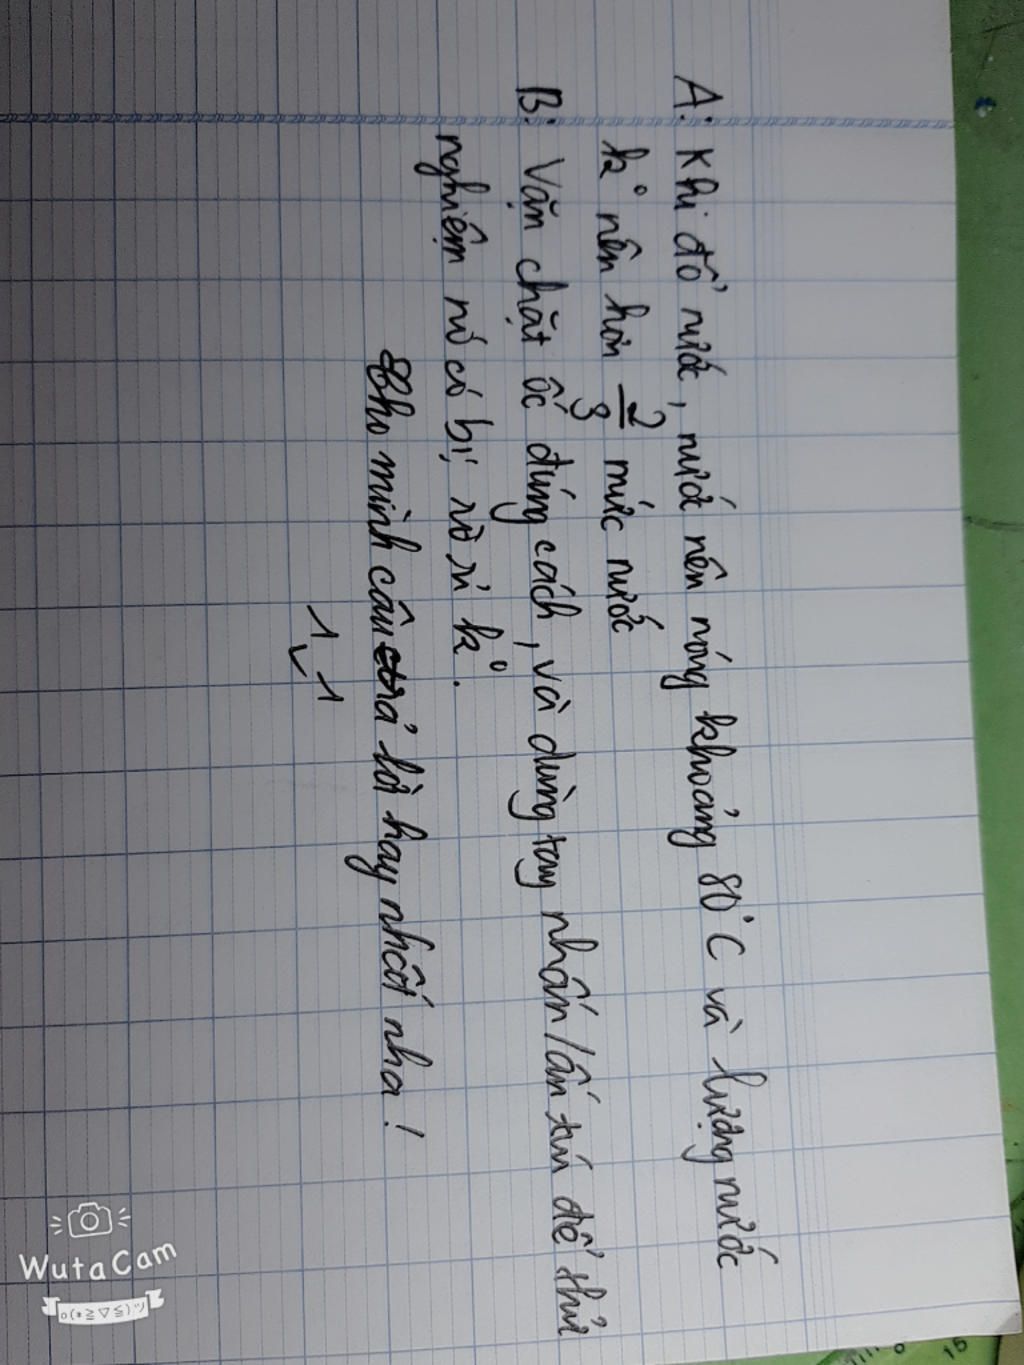 A: Khi đổ nước, nước nên nóng khoảng 80°C và lượng nước
k° nên hơn 2/3 mức nước
B: Vặn chặt ốc đúng cách, và dùng tay nhấn/ấn túi để thử
nghiệm nó có bị rò rỉ k°.
Cho mình câu trả lời hay nhất nha!
1
1
WutaCam
o(*≧▽≦)ツ
15